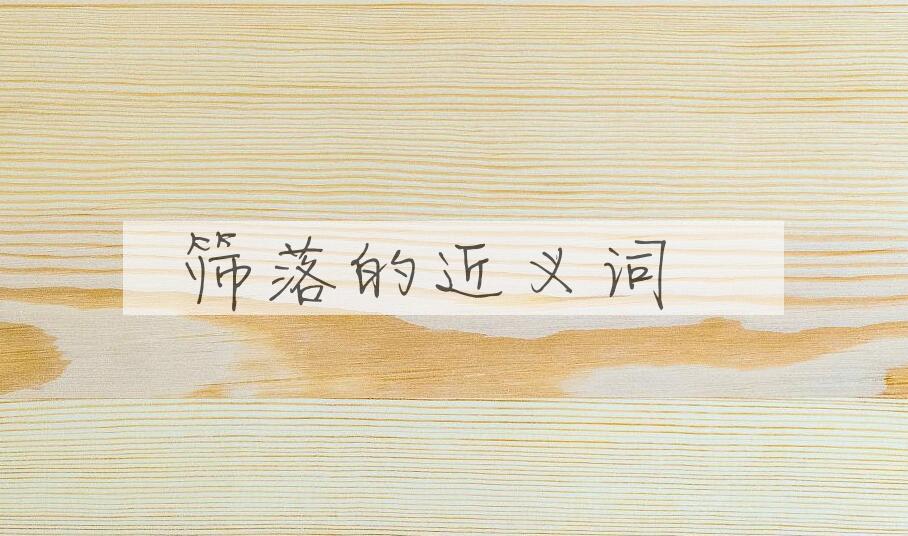 筛落的近义词